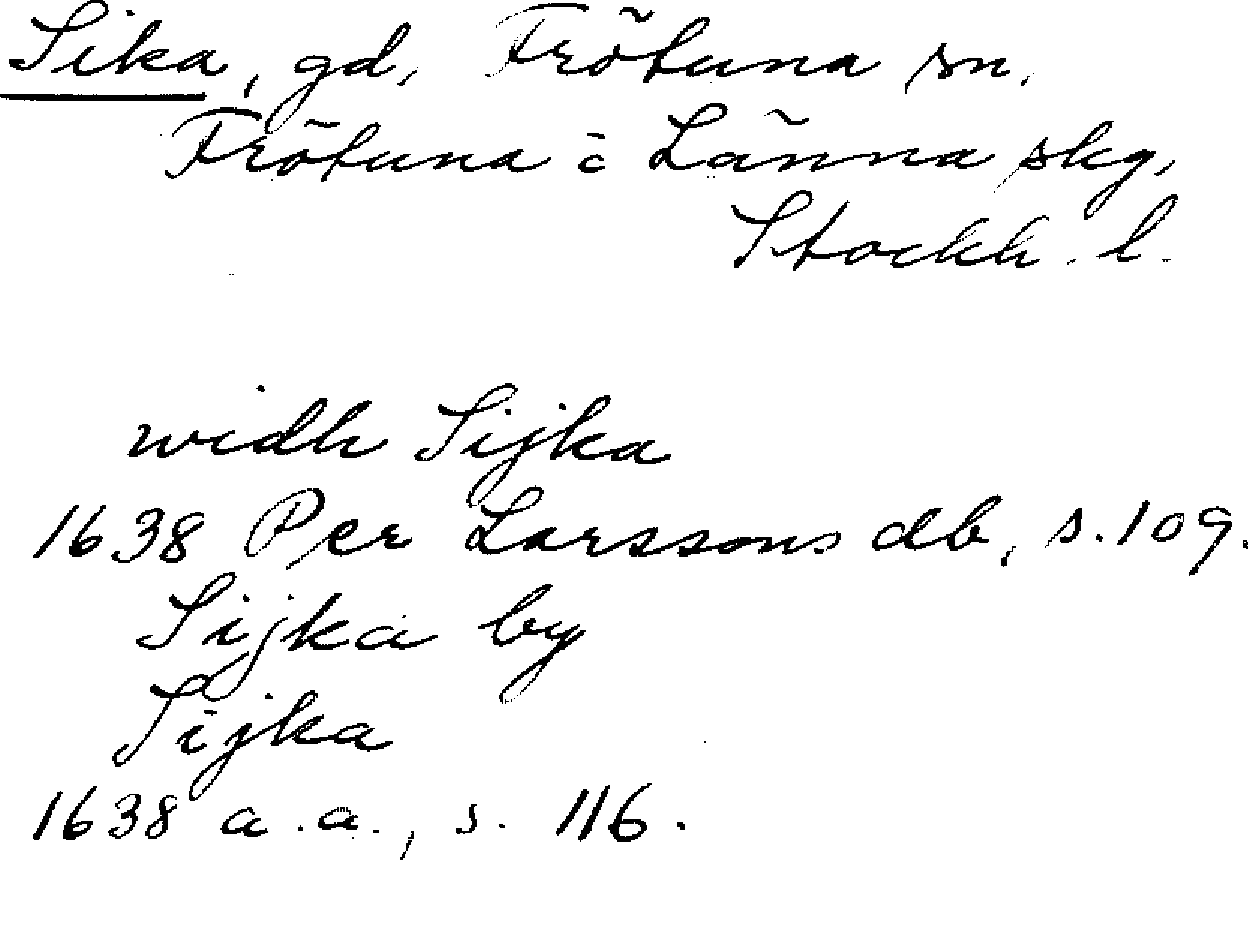 Sika, gd, Frötuna sn.
Frötuna o Länna skg,
Stockh. l.
widh Sijka
1638 Per Larssons db, s. 109.
Sijka by
Sijka
1638 a.a., s. 116.